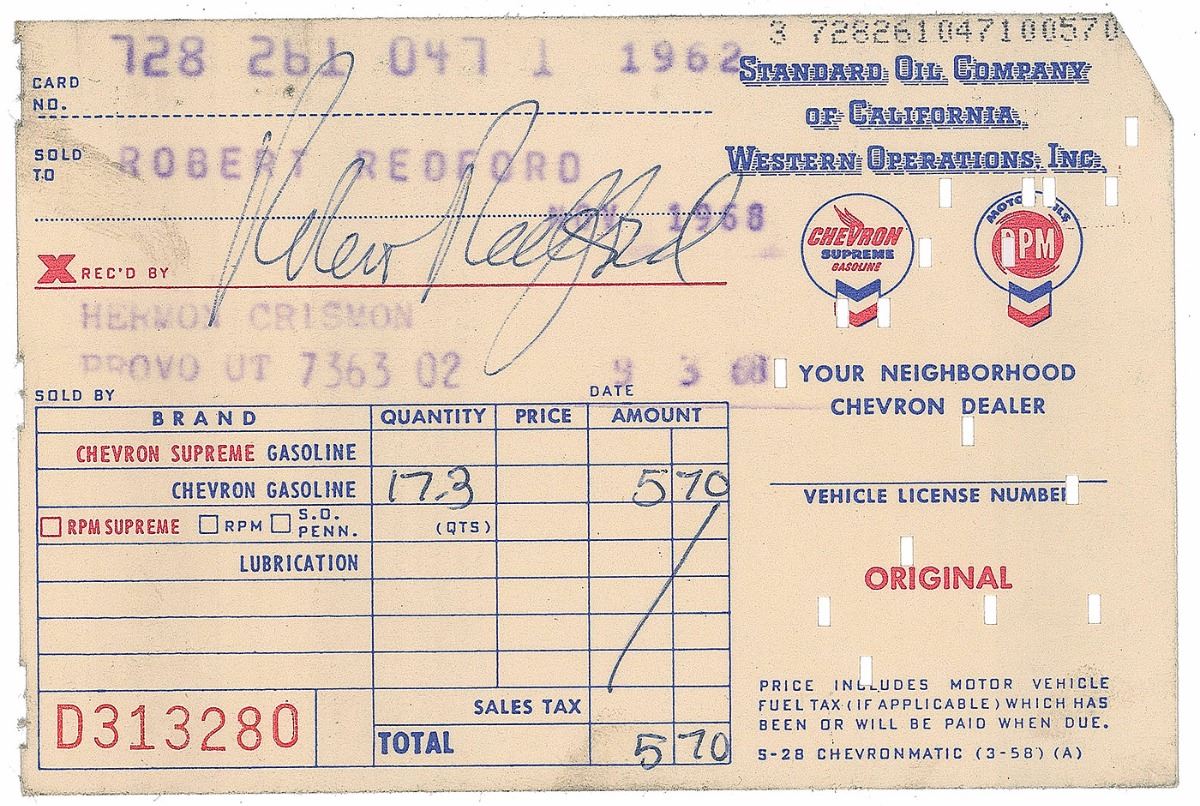 3 728261047100570
728 261 047 1 1962
CARD NO.
STANDARD OIL COMPANY
OF CALIFORNIA,
WESTERN OPERATIONS, INC.
SOLD TO
ROBERT REDFORD
NOV 1968
X REC'D BY
Robert Redford
CHEVRON
SUPREME
GASOLINE
MOTOR OILS
RPM
HERMON CRISMON
PROVO UT 7363 02
3 68
SOLD BY
DATE
YOUR NEIGHBORHOOD
CHEVRON DEALER
BRAND QUANTITY PRICE AMOUNT
CHEVRON SUPREME GASOLINE
CHEVRON GASOLINE 17.3 5 70
RPM SUPREME RPM S.O. PENN. (QTS)
LUBRICATION
VEHICLE LICENSE NUMBER
ORIGINAL
SALES TAX
D313280
TOTAL 5 70
PRICE INCLUDES MOTOR VEHICLE
FUEL TAX (IF APPLICABLE) WHICH HAS
BEEN OR WILL BE PAID WHEN DUE.
S-28 CHEVRONMATIC (3-58) (A)